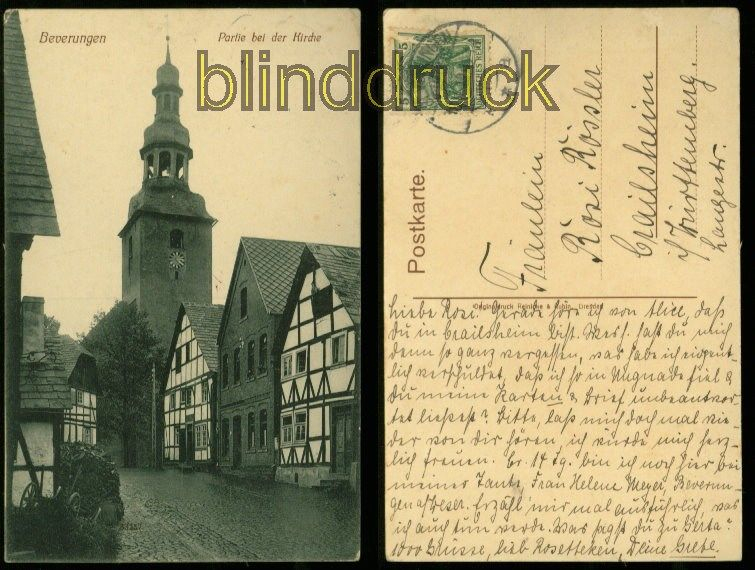 Beverungen
Partie bei der Kirche
blinddruck
Postkarte.
Fräulein
Rosi Rössler
Crailsheim
i/Württemberg.
Langestr.
Originaldruck Reinicke & Rubin, Dresden
Liebe Rosi. Gerade höre ich von Alice, daß
du in Crailsheim bist. Wesh. hast du mich
denn so ganz vergessen, was habe ich eigent-
lich verschuldet, daß ich so in Ungnade fiel &
du meine Karten & Brief unbeantwor-
tet ließest? Bitte, laß mich doch mal wie-
der von dir hören, ich würde mich herz-
lich freuen. Ca. 14 Tg. bin ich noch hier bei
meiner Tante, Frau Helene Meyer, Beverun-
gen a/Weser. Erzähl mir mal ausführlich, was
ich auch tun werde. Was sagst du zu Gerta?
1000 Grüsse, lieb Rosettchen, Deine Grete.